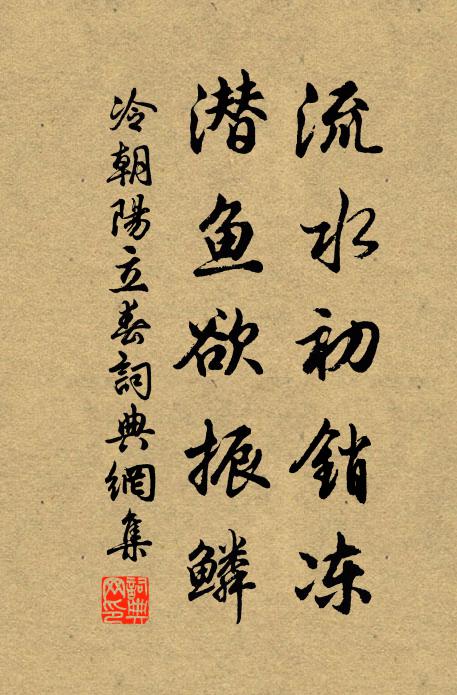 流水初銷冻
潜鱼欲振鳞
冷朝陽立春詞典網集
詞典網印